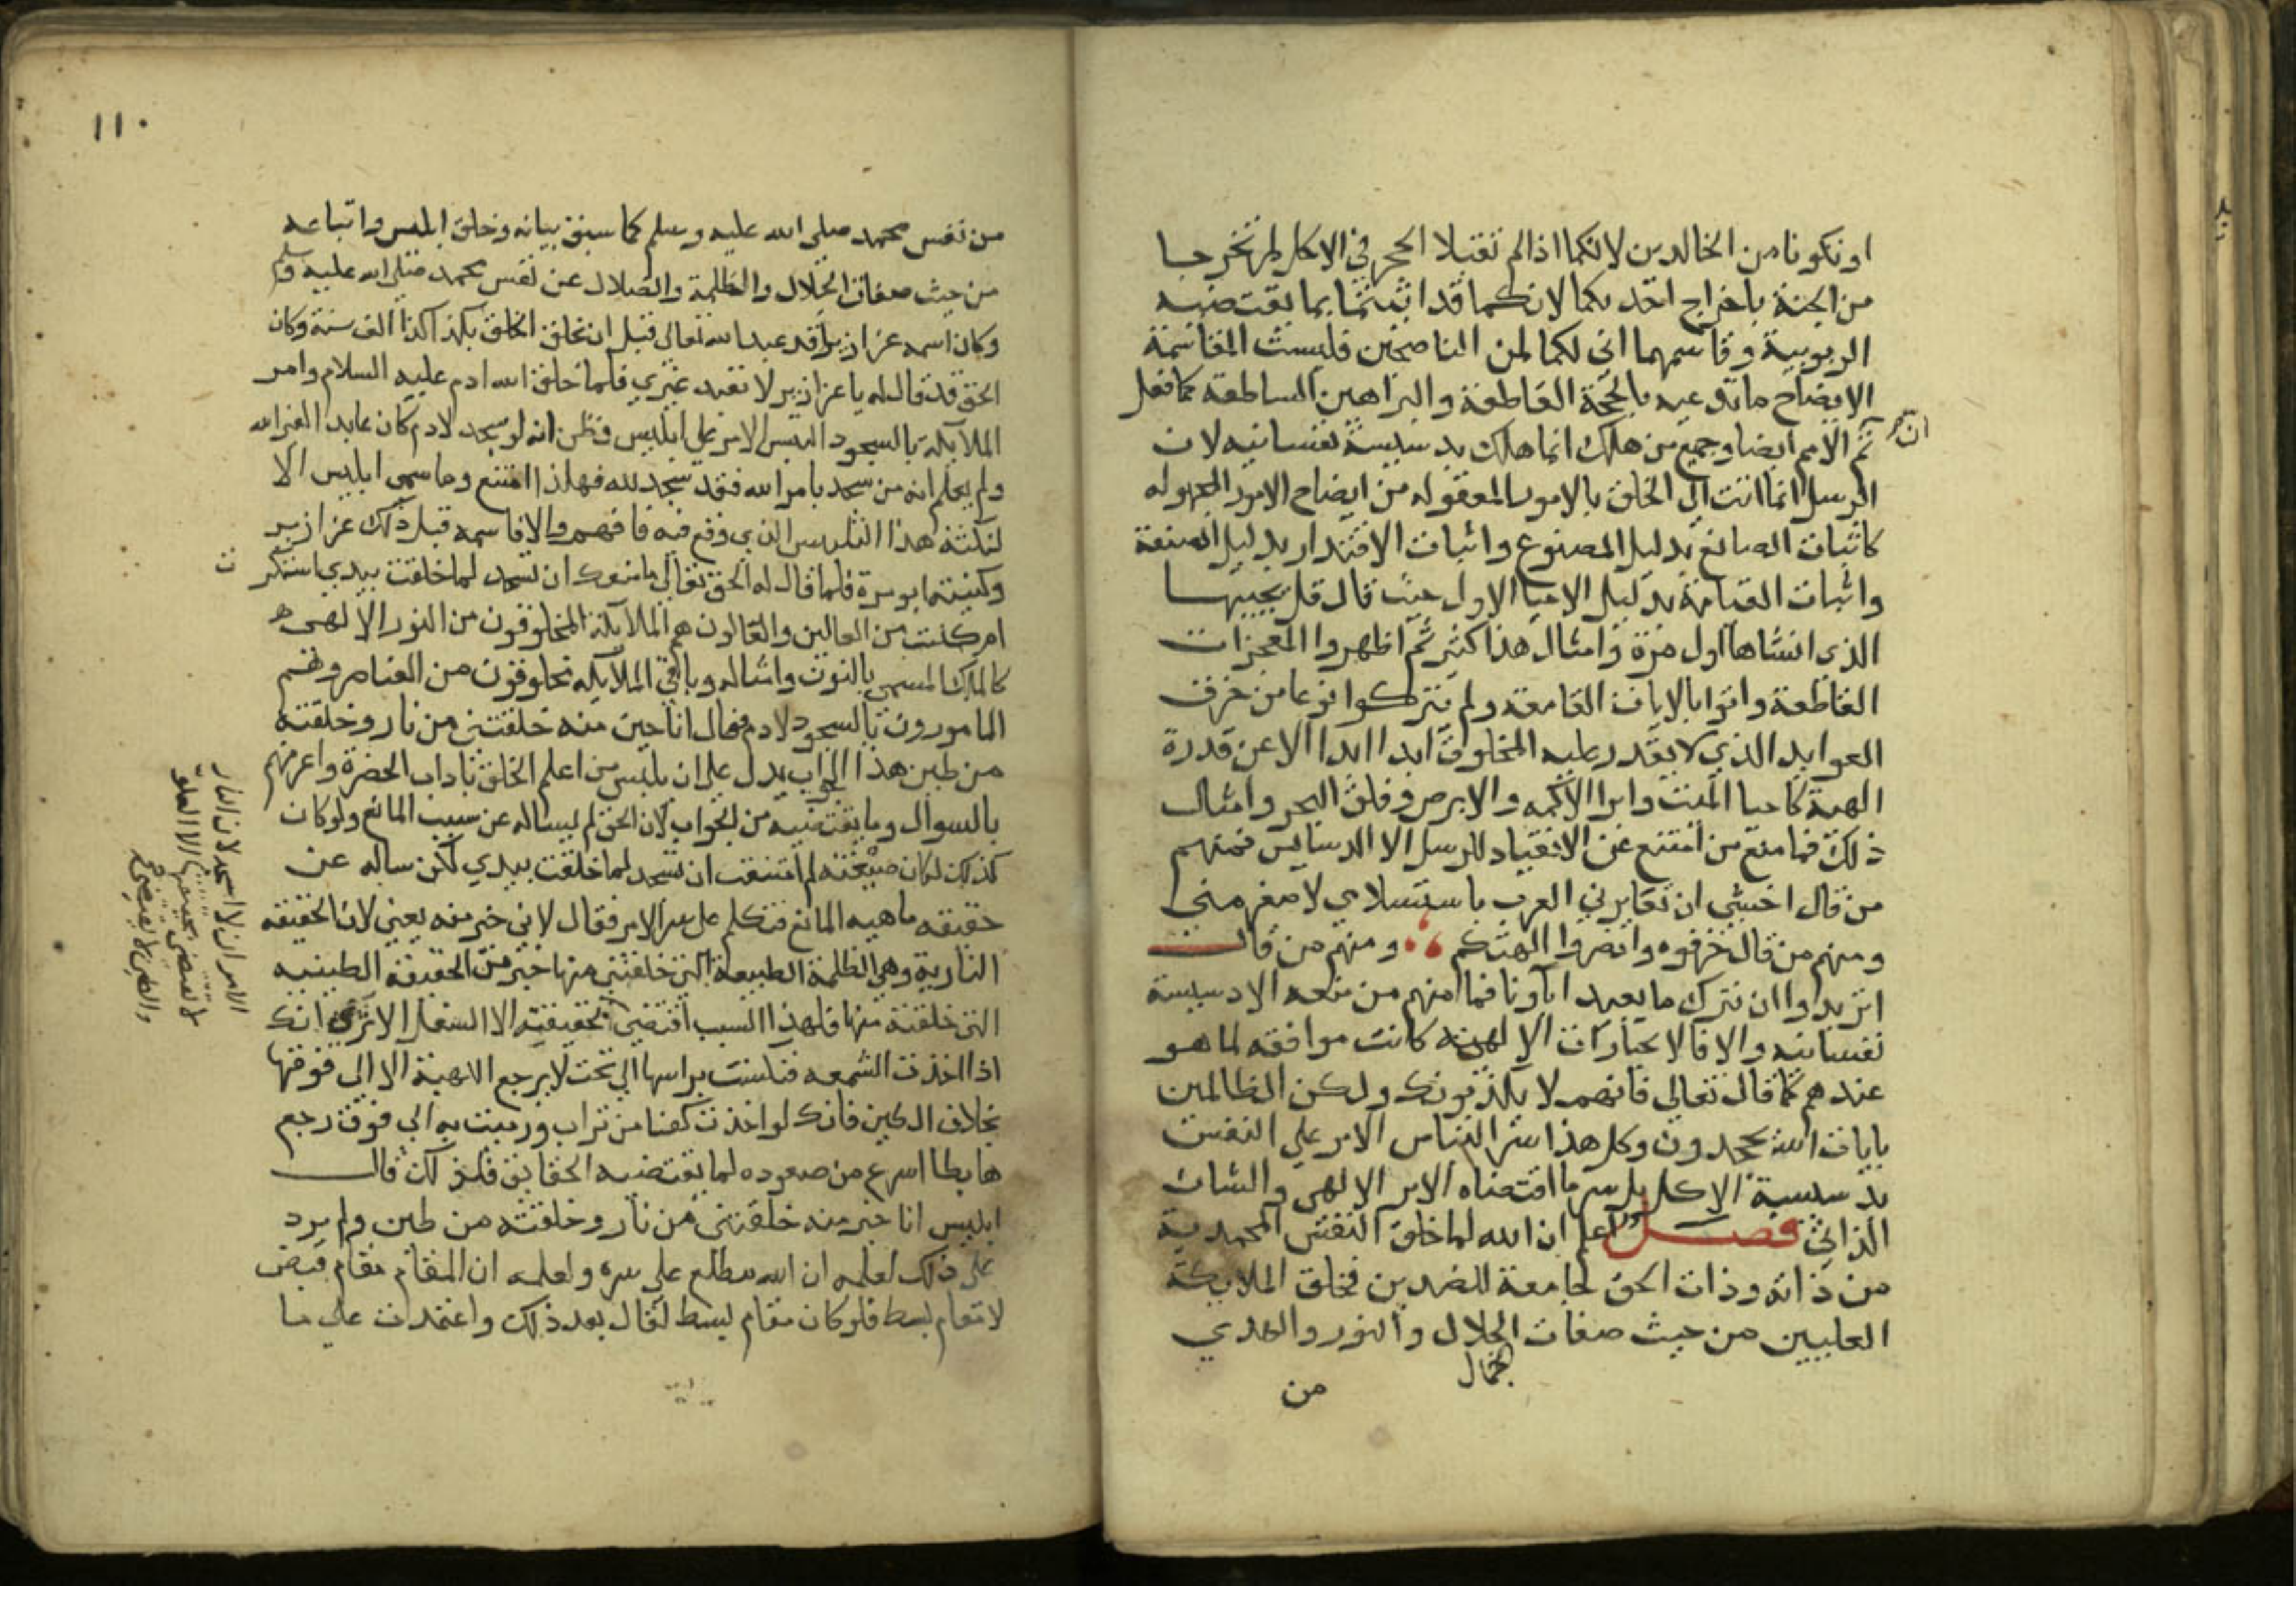 او تكونا من الخالدين لانكما اذا لم تقبلا الحجر في الاكل لم تخرجا
من الجنة باخراج احد بكما لانكما قد اتيتما بما تقتضيه
الربوبية وقاسمهما اني لكما لمن الناصحين فليست المقاسمة
الا ايضاح ما تدعيه بالحجة القاطعة والبراهين الساطعة كما فعل
ثم الامم ايضا وجميع من هلك انما هلك بدسيسة نفسانيه لان
الرسل انما اتت الي الخلق بالامور المعقوله من ايضاح الامور المجهوله
كاثبات الصانع بدليل المصنوع واثبات الاقتدار بدليل الصنعة
واثبات القيامة بدليل الاحيا الاول حيث قال قل يحييها
الذي انشاها اول مرة وامثال هذا كثير ثم اظهروا المعجزات
القاطعة واتوا بالايات القامعة ولم يتركوا نوعا من خرق
العوايد الذي لا يقدر عليه المخلوق ابدا ابدا الا عن قدرة
الهية كاحيا الميت وابرا الاكمه والابرص وفلق البحر وامثال
ذلك فما منع من امتنع عن الانقياد للرسل الا الدسايس فمنهم
من قال اخشي ان تعايرني العرب باستسلامي لاصغر مني
ومنهم من قال حرقوه وانصروا الهتكم ومنهم من قال
اتريدوا ان نترك ما يعبد اباونا فما منهم من منعه الا دسيسة
نفسانيه والا فالاخبارات الالهية كانت موافقه لما هو
عندهم كما قال تعالي فانهم لا يكذبونك ولكن الظالمين
بايات الله يجحدون وكل هذا سر التباس الامر علي النفس
بدسيسة الاكل بل سر ما اقتضاه الامر الالهي والشان
الذاتي فصل اعلم ان الله لما خلق النفس المحمدية
من ذاته وذات الحق لجامعة للضدين فخلق الملايكة
العليين من حيث صفات الجلال والنور والهدي
الجمال
من
١١٠
من نفس محمد صلي الله عليه وسلم كما سبق بيانه وخلق ابليس واتباعه
من حيث صفات الجلال والظلمة والضلال عن نفس محمد صلي الله عليه وسلم
وكان اسمه عزازير قد عبد الله تعالي قبل ان يخلق الخلق بكذا كذا الف سنة وكان
الحق قد قال له يا عزازير لا تعبد غيري فلما خلق الله ادم عليه السلام وامر
الملايكة بالسجود التبس الامر علي ابليس فظن انه لو سجد لادم كان عابدا لغير الله
ولم يعلم انه من سجد بامر الله فقد سجد لله فلهذا امتنع وما سمي ابليس الا
لنكتة هذا التلبيس الذي وقع فيه فافهم والا فاسمه قبل ذلك عزازير
وكنيته ابو مرة فلما قال له الحق تعالي ما منعك ان تسجد لما خلقت بيدي استكبر ت
ام كنت من العالين والعالون هم الملايكة المخلوقون من النور الالهي
كالملك المسمي بالنون وامثاله وباقي الملايكه مخلوقون من العناصر وهم
المامورون بالسجود لادم فقال انا خير منه خلقتني من نار وخلقته
من طين هذا الجواب يدل علي ان ابليس من اعلم الخلق باداب الحضرة واعرفهم
بالسوال وما يقتضيه من الجواب لان الحق لم يساله عن سبب المانع ولو كان
كذلك لكان صيغته لم امتنعت ان تسجد لما خلقت بيدي لكن ساله عن
حقيقه ماهيه المانع فتكلم علي سر الامر فقال لاني خير منه يعني لان الحقيقه
النارية وهي الظلمة الطبيعة التي خلقتني منها خير من الحقيقة الطينيه
التي خلقته منها فلهذا السبب اقتضي بحقيقته الا السفل الا تري انك
اذا اخذت الشمعه فنكست براسها الي تحت لا يرجع اللهبة الا الي فوقها
بخلاف الطين فانك لو اخذت كفا من تراب ورميت به الي فوق رجع
هابطا اسرع من صعوده لما تقتضيه الحقايق فلذلك قال
ابليس انا خير منه خلقتني من نار وخلقته من طين ولم يزد
علي ذلك لعلمه ان الله مطلع علي سره ولعلمه ان المقام مقام قبض
لا مقام بسط فلو كان مقام بسط لقال بعد ذلك واعتمدت علي ما
الامر ان لا اسجد لان النار
لا تقتضي بحقيقتها الا العلو
والطين لا يقتضي